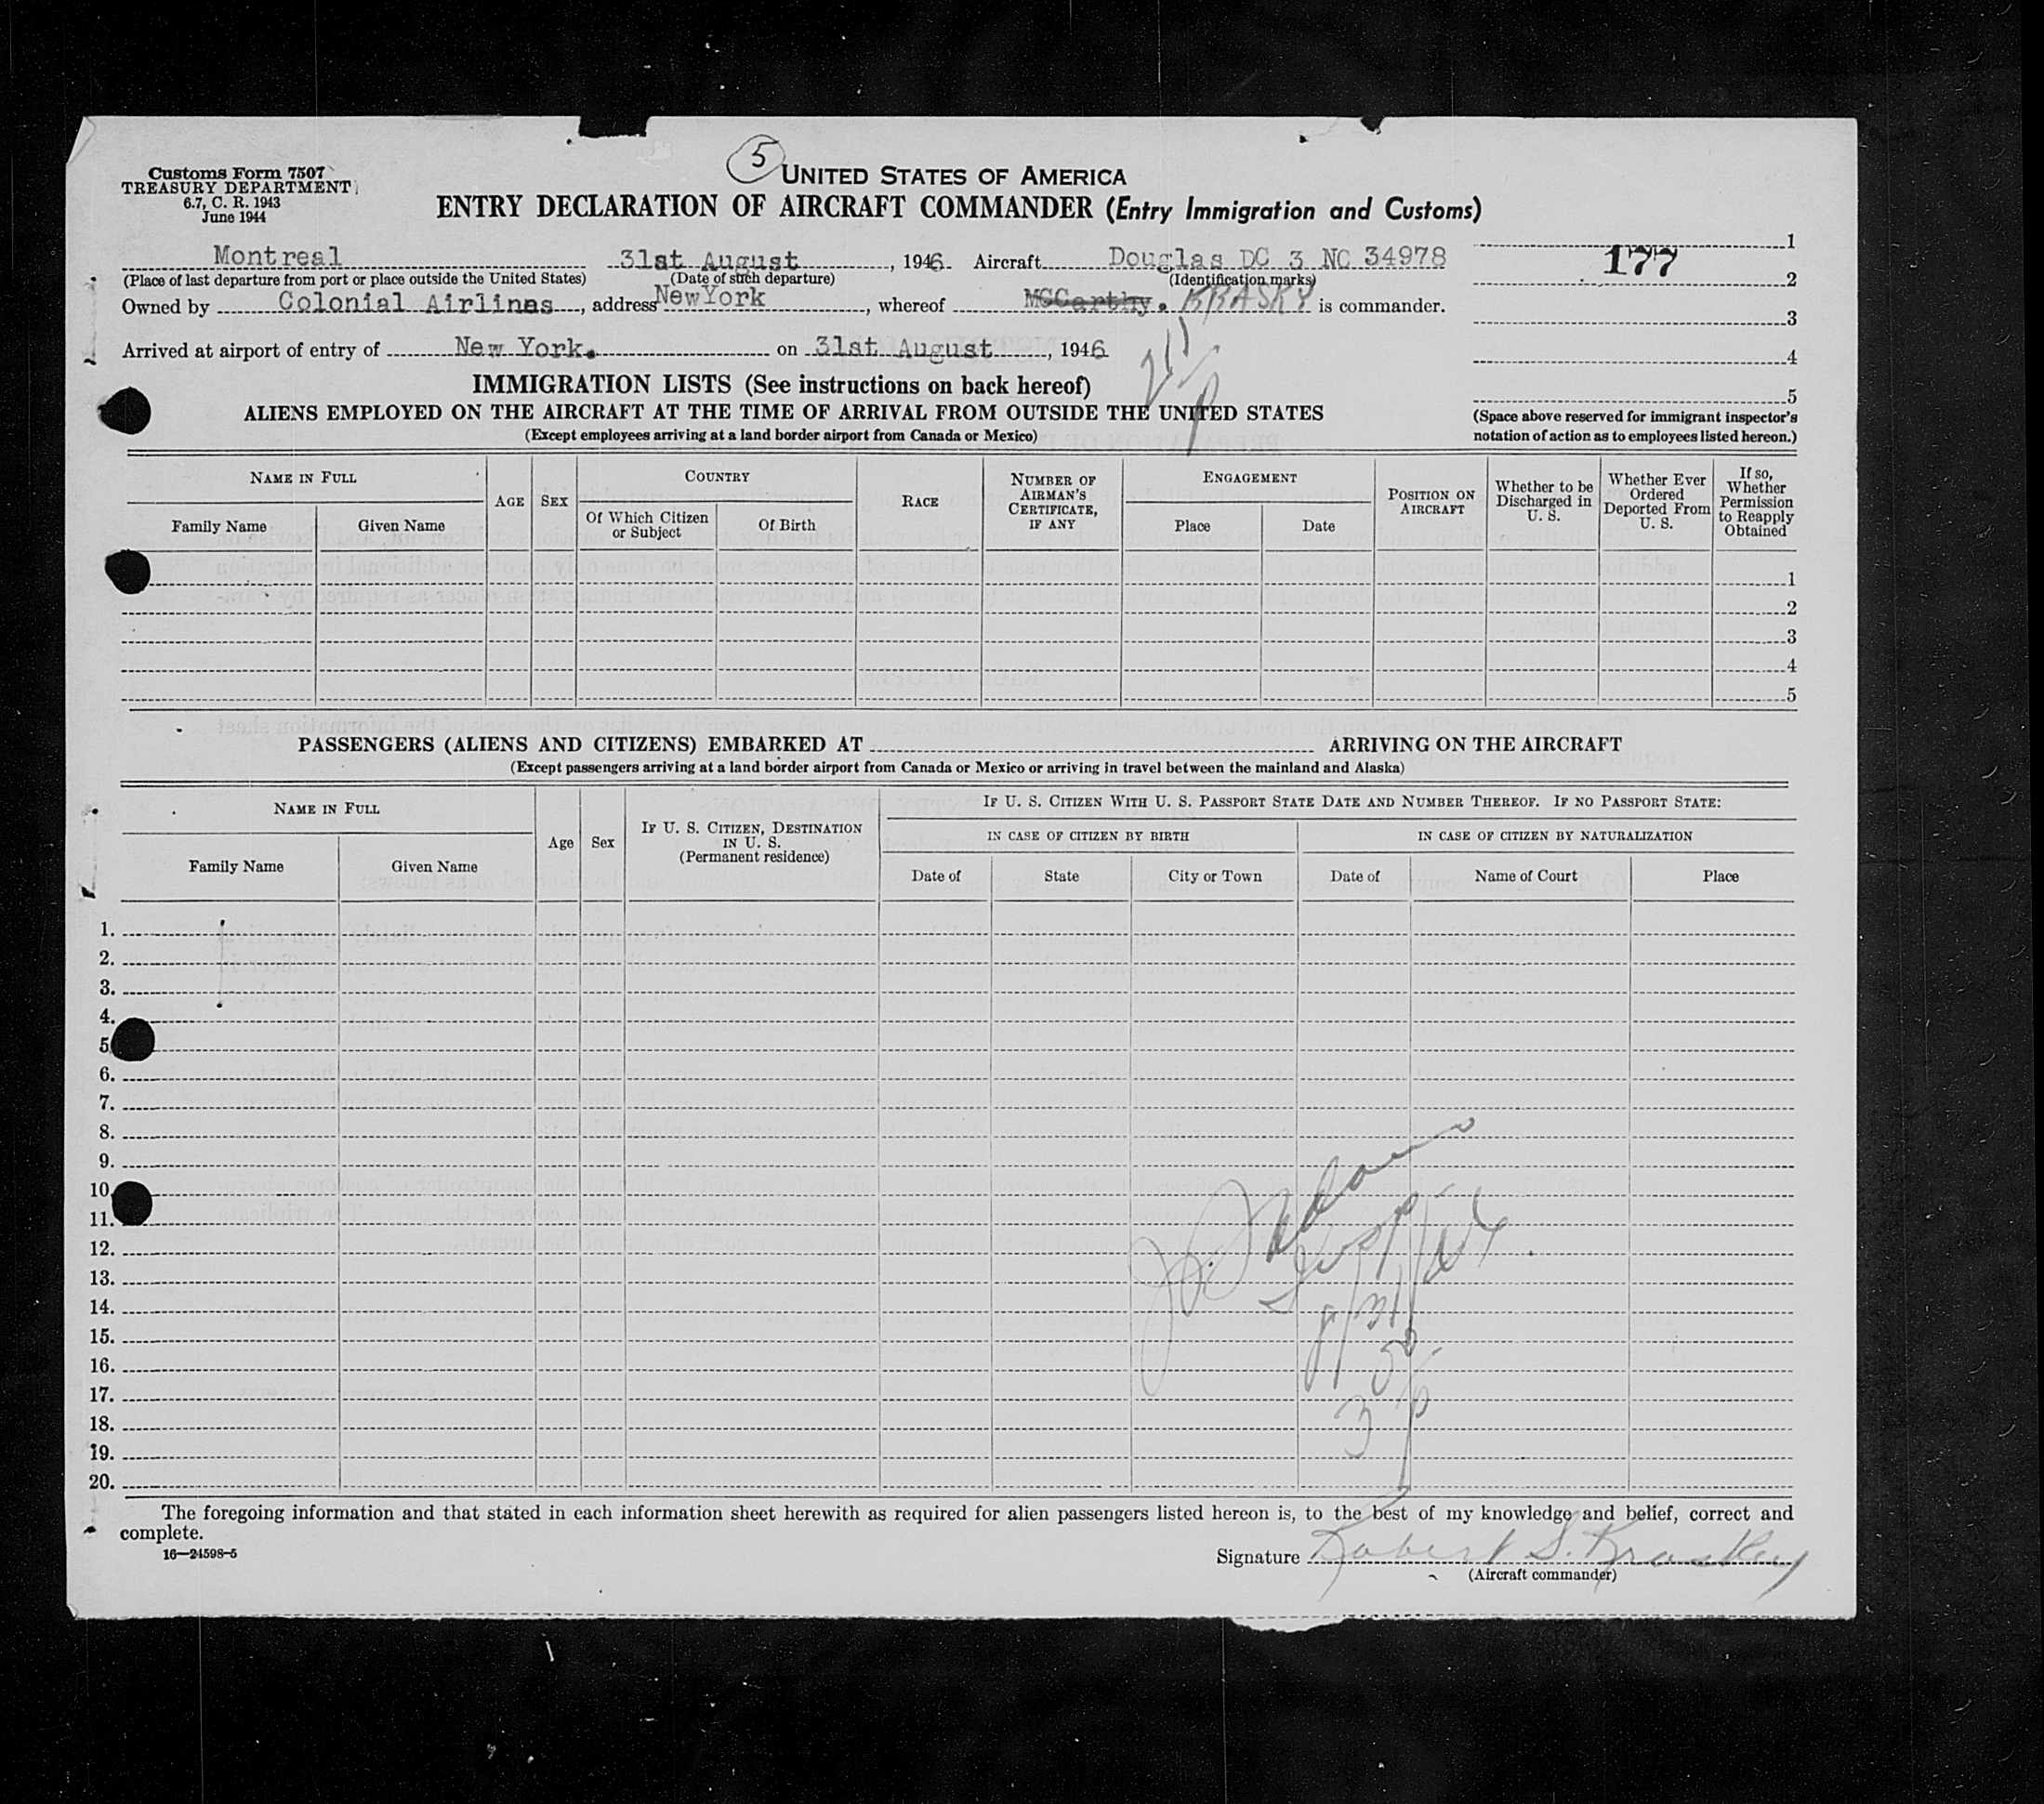 5
Customs Form 7507
TREASURY DEPARTMENT
6.7, C. R. 1943
June 1944
UNITED STATES OF AMERICA
ENTRY DECLARATION OF AIRCRAFT COMMANDER (Entry Immigration and Customs)
Montreal 31st August, 1946 Aircraft Douglas DC 3 NC 34978
(Place of last departure from port or place outside the United States) (Date of such departure) (Identification marks)
Owned by Colonial Airlines, address NewYork, whereof MCCarthy. KRASKY is commander.
Arrived at airport of entry of New York. on 31st August, 1946
1
177
2
3
4
5
(Space above reserved for immigrant inspector's
notation of action as to employees listed hereon.)
IMMIGRATION LISTS (See instructions on back hereof)
ALIENS EMPLOYED ON THE AIRCRAFT AT THE TIME OF ARRIVAL FROM OUTSIDE THE UNITED STATES
(Except employees arriving at a land border airport from Canada or Mexico)
NAME IN FULL
Family Name Given Name
AGE SEX
COUNTRY
Of Which Citizen
or Subject
Of Birth
RACE
NUMBER OF
AIRMAN'S
CERTIFICATE,
IF ANY
ENGAGEMENT
Place Date
POSITION ON
AIRCRAFT
Whether to be
Discharged in
U. S.
Whether Ever
Ordered
Deported From
U. S.
If so,
Whether
Permission
to Reapply
Obtained
1
2
3
4
5
PASSENGERS (ALIENS AND CITIZENS) EMBARKED AT ARRIVING ON THE AIRCRAFT
(Except passengers arriving at a land border airport from Canada or Mexico or arriving in travel between the mainland and Alaska)
NAME IN FULL
Family Name Given Name
Age Sex
IF U. S. CITIZEN, DESTINATION
IN U. S.
(Permanent residence)
IF U. S. CITIZEN WITH U. S. PASSPORT STATE DATE AND NUMBER THEREOF. IF NO PASSPORT STATE:
IN CASE OF CITIZEN BY BIRTH IN CASE OF CITIZEN BY NATURALIZATION
Date of State City or Town Date of Name of Court Place
1.
2.
3.
4.
5
6.
7.
8.
9.
10
11.
12.
13.
14.
15.
16.
17.
18.
19.
20.
8/31/46
The foregoing information and that stated in each information sheet herewith as required for alien passengers listed hereon is, to the best of my knowledge and belief, correct and
complete.
16—24598-5
Signature Robert S. Krasky
(Aircraft commander)